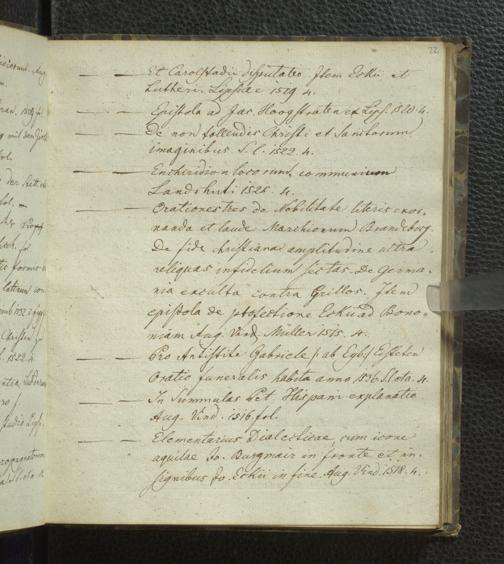 22
— — Et Carolstadii disputatio. Item Eckii et
Lutheri. Lipsiae 1519. 4.
— — Epistola ad Jac. Hoogstraten ex Lips. 1520. 4.
— — De non tollendis Christi et Sanctorum
imaginibus. S. l. 1522. 4.
— — Enchiridion locorum communium
Landshuti 1525. 4.
— — Orationes tres de Nobilitate literis exor-
nanda et laude Marchionum Brandeburg.
De fide christiana amplitudine ultra
reliquas infidelium sectas. De Germa-
nia exculta contra Grillos. Item
epistola de profectione Eckii ad Bono-
niam Aug. Vind. Miller 1515. 4.
— — Pro Antistite Gabriele ab Eyb Eysteten
Oratio funeralis habita anno 1536. S. l. et a. 4.
— — In Summulas Pet. Hispani explanatio
Aug. Vind. 1516 fol.
— — Elementarius Dialecticae, cum icone
aquilae Jo. Burgmair in fronte et in-
signibus Jo. Eckii in fine. Aug. Vind. 1518. 4.